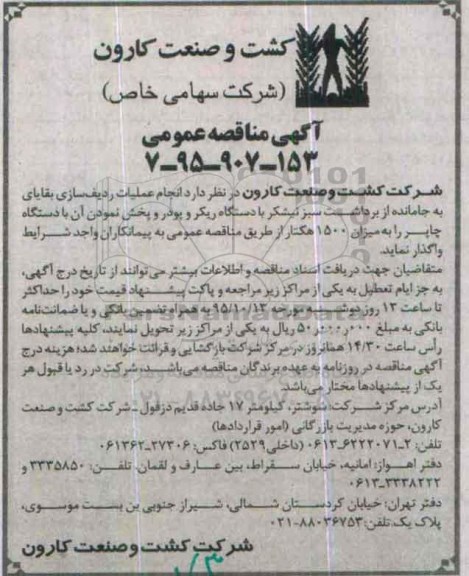 کشت و صنعت کارون
(شرکت سهامی خاص)
آگهی مناقصه عمومی
۷-۹۵-۹۰۷-۱۵۳
شرکت کشت و صنعت کارون در نظر دارد انجام عملیات ردیف‌سازی بقایای
به جامانده از برداشت سبز نیشکر با دستگاه ریکر و پودر و پخش نمودن آن با دستگاه
چاپر را به میزان ۱۵۰۰ هکتار از طریق مناقصه عمومی به پیمانکاران واجد شرایط
واگذار نماید.
متقاضیان جهت دریافت اسناد مناقصه و اطلاعات بیشتر می‌توانند از تاریخ درج آگهی،
به جز ایام تعطیل به یکی از مراکز زیر مراجعه و پاکت پیشنهاد قیمت خود را حداکثر
تا ساعت ۱۳ روز دوشنبه مورخه به همراه تضمین بانکی و یا ضمانت‌نامه
بانکی به مبلغ ۵۰,۰۰۰,۰۰۰ ریال به یکی از مراکز زیر تحویل نمایند، کلیه پیشنهادها
رأس ساعت ۱۴/۳۰ همانروز در مرکز شرکت بازگشایی و قرائت خواهند شد؛ هزینه درج
آگهی مناقصه در روزنامه به عهده برندگان مناقصه می‌باشد، شرکت در رد یا قبول هر
یک از پیشنهادها مختار می‌باشد.
آدرس مرکز شرکت: شوشتر، کیلومتر ۱۷ جاده قدیم دزفول - شرکت کشت و صنعت
کارون، حوزه مدیریت بازرگانی (امور قراردادها)
تلفن: ۲-۰۶۱۳۶۲۲۲۰۷۱ (داخلی ۲۵۲۹) فاکس: ۰۶۱۳۶۲۳۷۳۰۶
دفتر اهواز: امانیه، خیابان سقراط، بین عارف و لقمان، تلفن: ۳۳۳۵۸۵۰ و
۰۶۱۳-۳۳۳۸۲۲۲
دفتر تهران: خیابان کردستان شمالی، شیراز جنوبی بن بست موسوی،
پلاک یک تلفن: ۰۲۱-۸۸۰۳۶۷۵۳
شرکت کشت و صنعت کارون